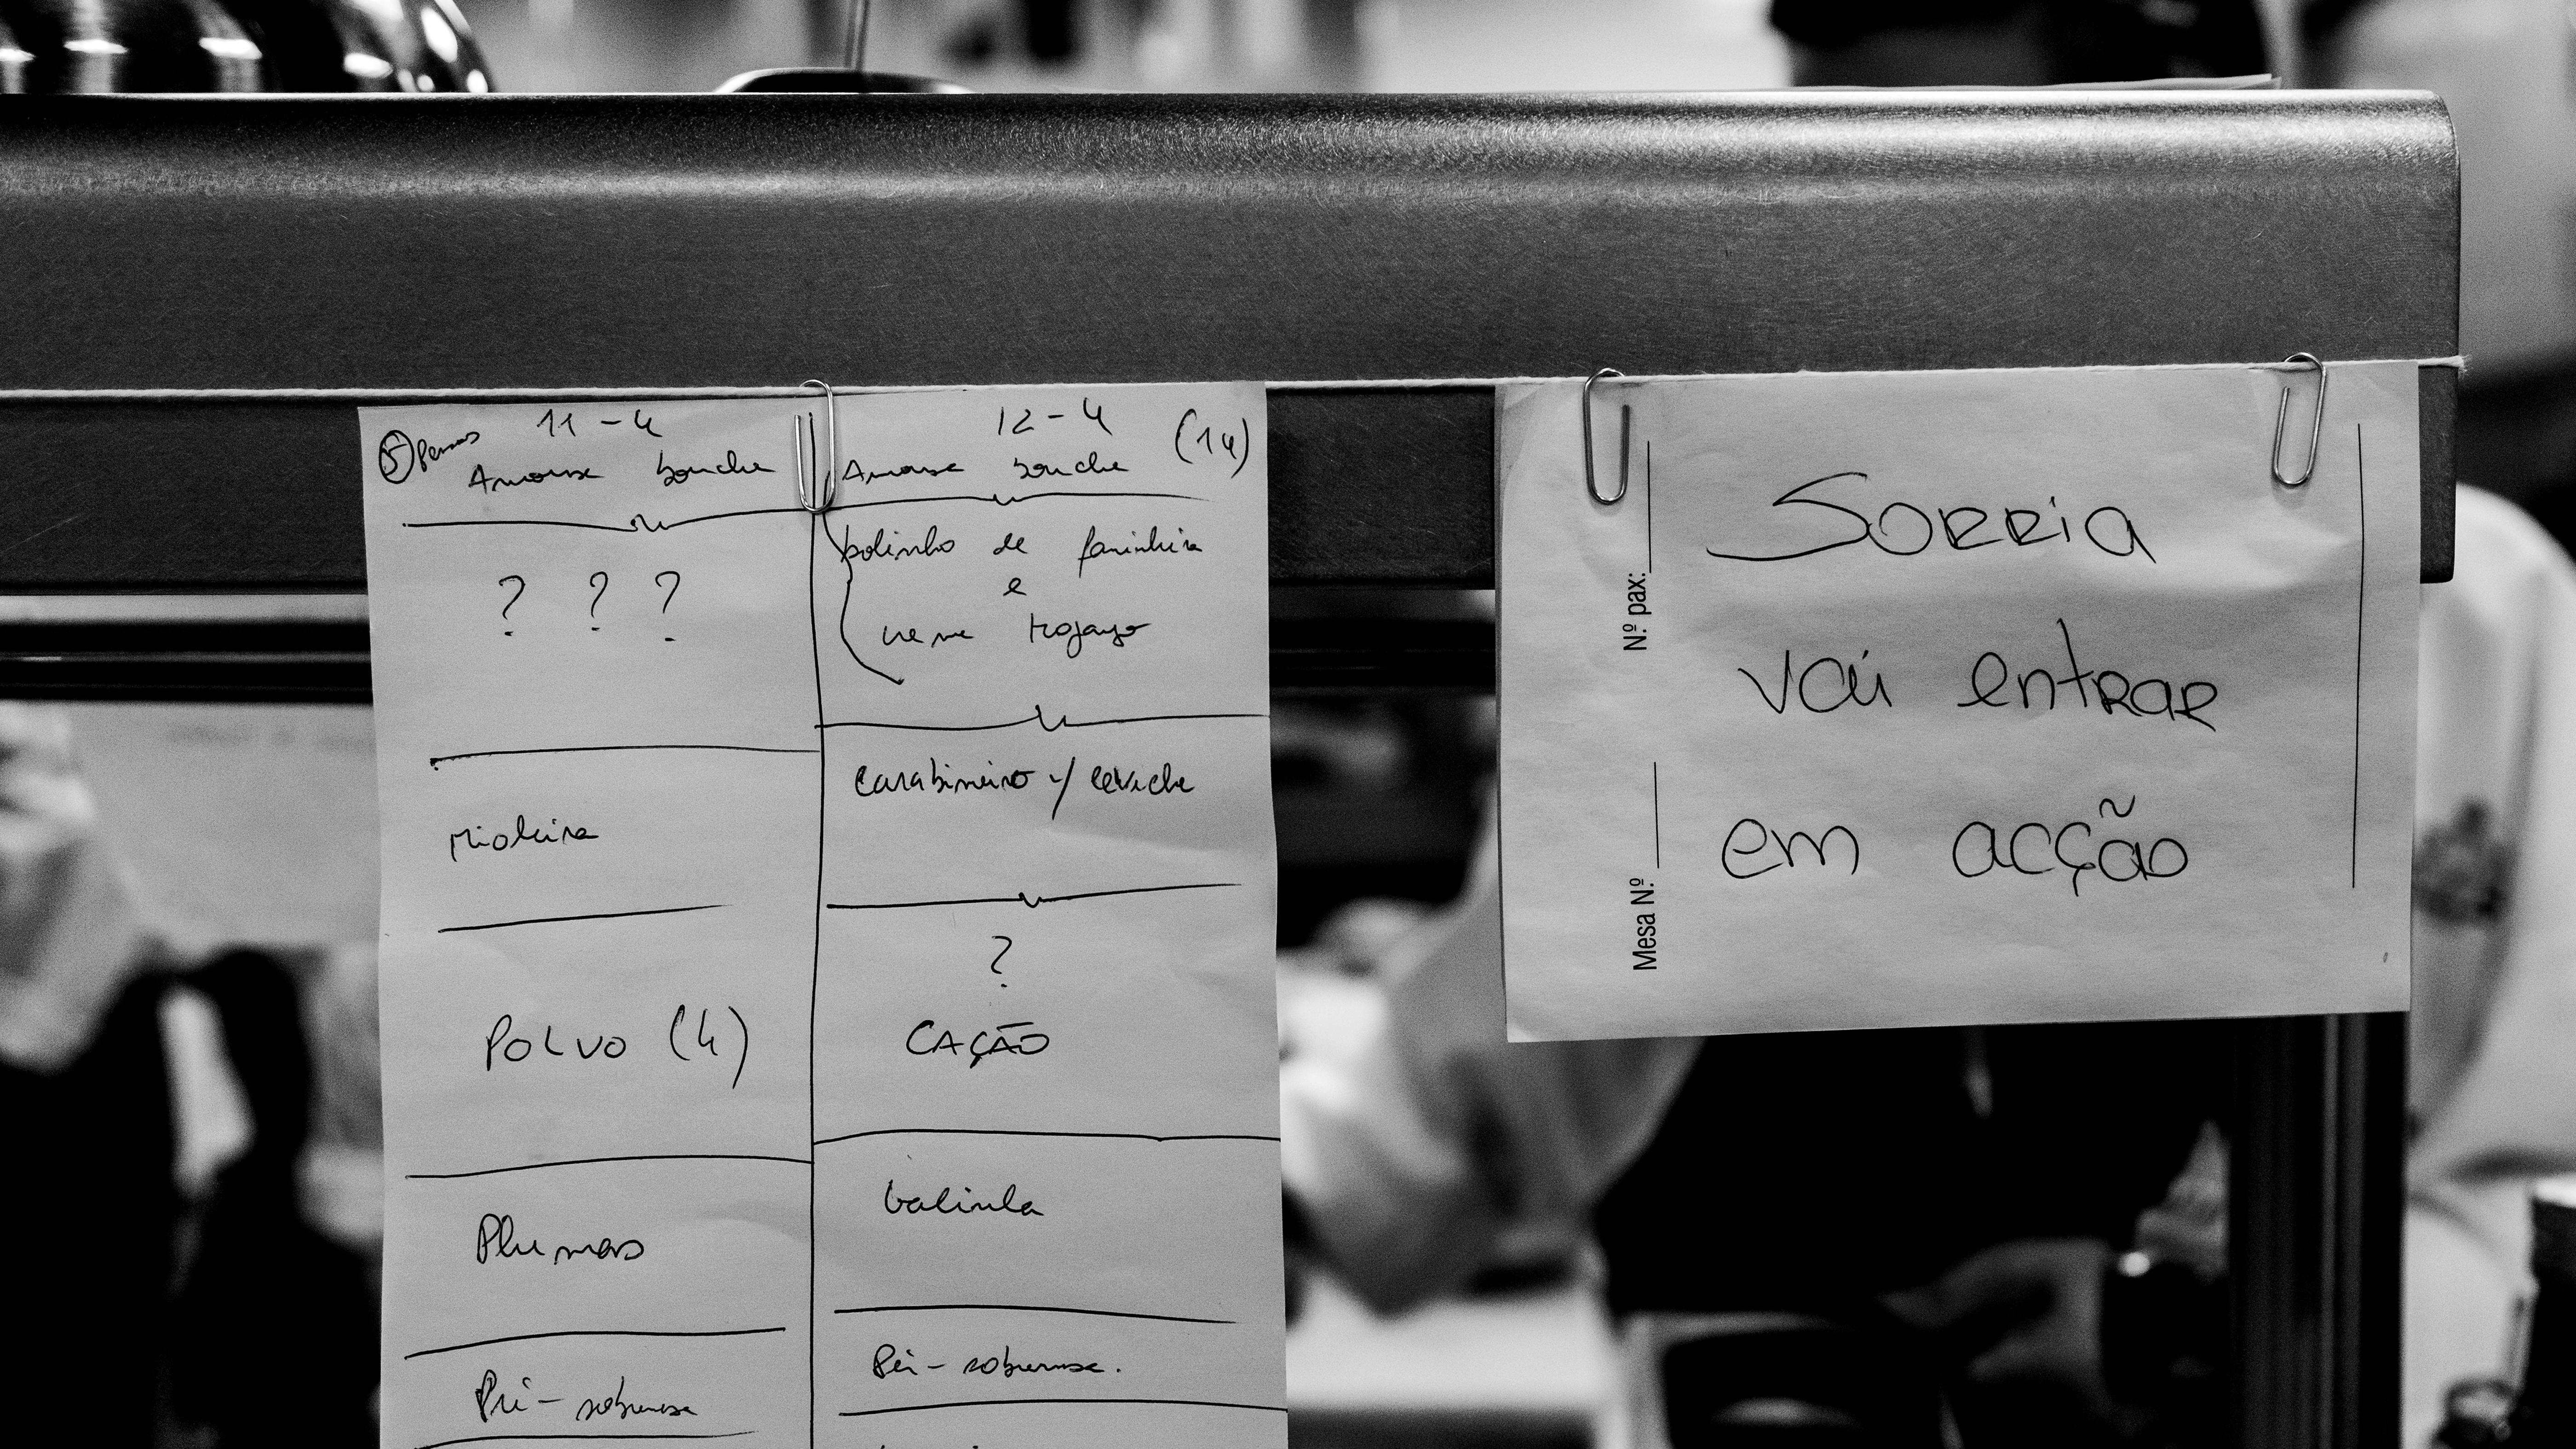 5 Pessoas
11-4
Amouse bouche
? ? ?
Mioleira
POLVO (4)
Plumas
Pré-sobremesa
12-4 (14)
Amouse bouche
bolinho de farinheira
e
creme
Carabineiro c/ ceviche
?
CAÇÃO
Galinha
Pré-sobremesa.
Nº pax:
Mesa Nº
Sorria
vai entrar
em acção